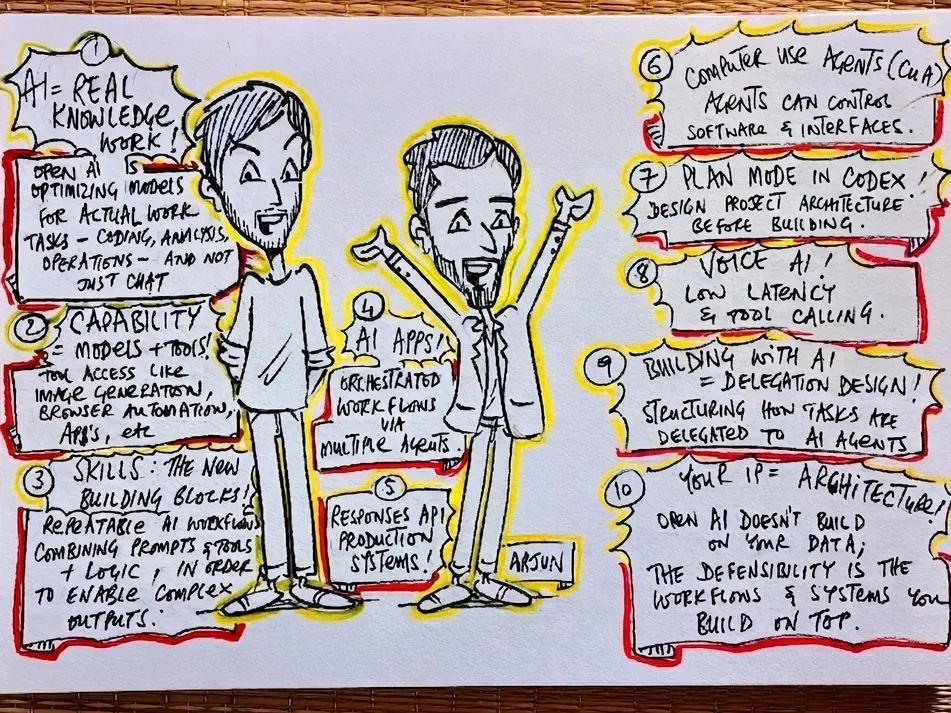 1
AI = REAL
KNOWLEDGE
WORK!
OPEN AI IS
OPTIMIZING MODELS
FOR ACTUAL WORK
TASKS - CODING, ANALYSIS,
OPERATIONS - AND NOT
JUST CHAT
2
CAPABILITY
= MODELS + TOOLS!
TOOL ACCESS LIKE
IMAGE GENERATION,
BROWSER AUTOMATION,
APP'S, ETC
3
SKILLS: THE NEW
BUILDING BLOCKS!
REPEATABLE AI WORKFLOWS
COMBINING PROMPTS & TOOLS
+ LOGIC, IN ORDER
TO ENABLE COMPLEX
OUTPUTS.
4
AI APPS!
ORCHESTRATED
WORKFLOWS
VIA
MULTIPLE AGENTS.
5
RESPONSES API
PRODUCTION
SYSTEMS!
ARJUN
6
COMPUTER USE AGENTS (CUA)
AGENTS CAN CONTROL
SOFTWARE & INTERFACES.
7
PLAN MODE IN CODEX!
DESIGN PROJECT ARCHITECTURE
BEFORE BUILDING.
8
VOICE AI!
LOW LATENCY
& TOOL CALLING.
9
BUILDING WITH AI
= DELEGATION DESIGN!
STRUCTURING HOW TASKS ARE
DELEGATED TO AI AGENTS
10
YOUR IP = ARCHITECTURE!
OPEN AI DOESN'T BUILD
ON YOUR DATA;
THE DEFENSIBILITY IS THE
WORKFLOWS & SYSTEMS YOU
BUILD ON TOP.